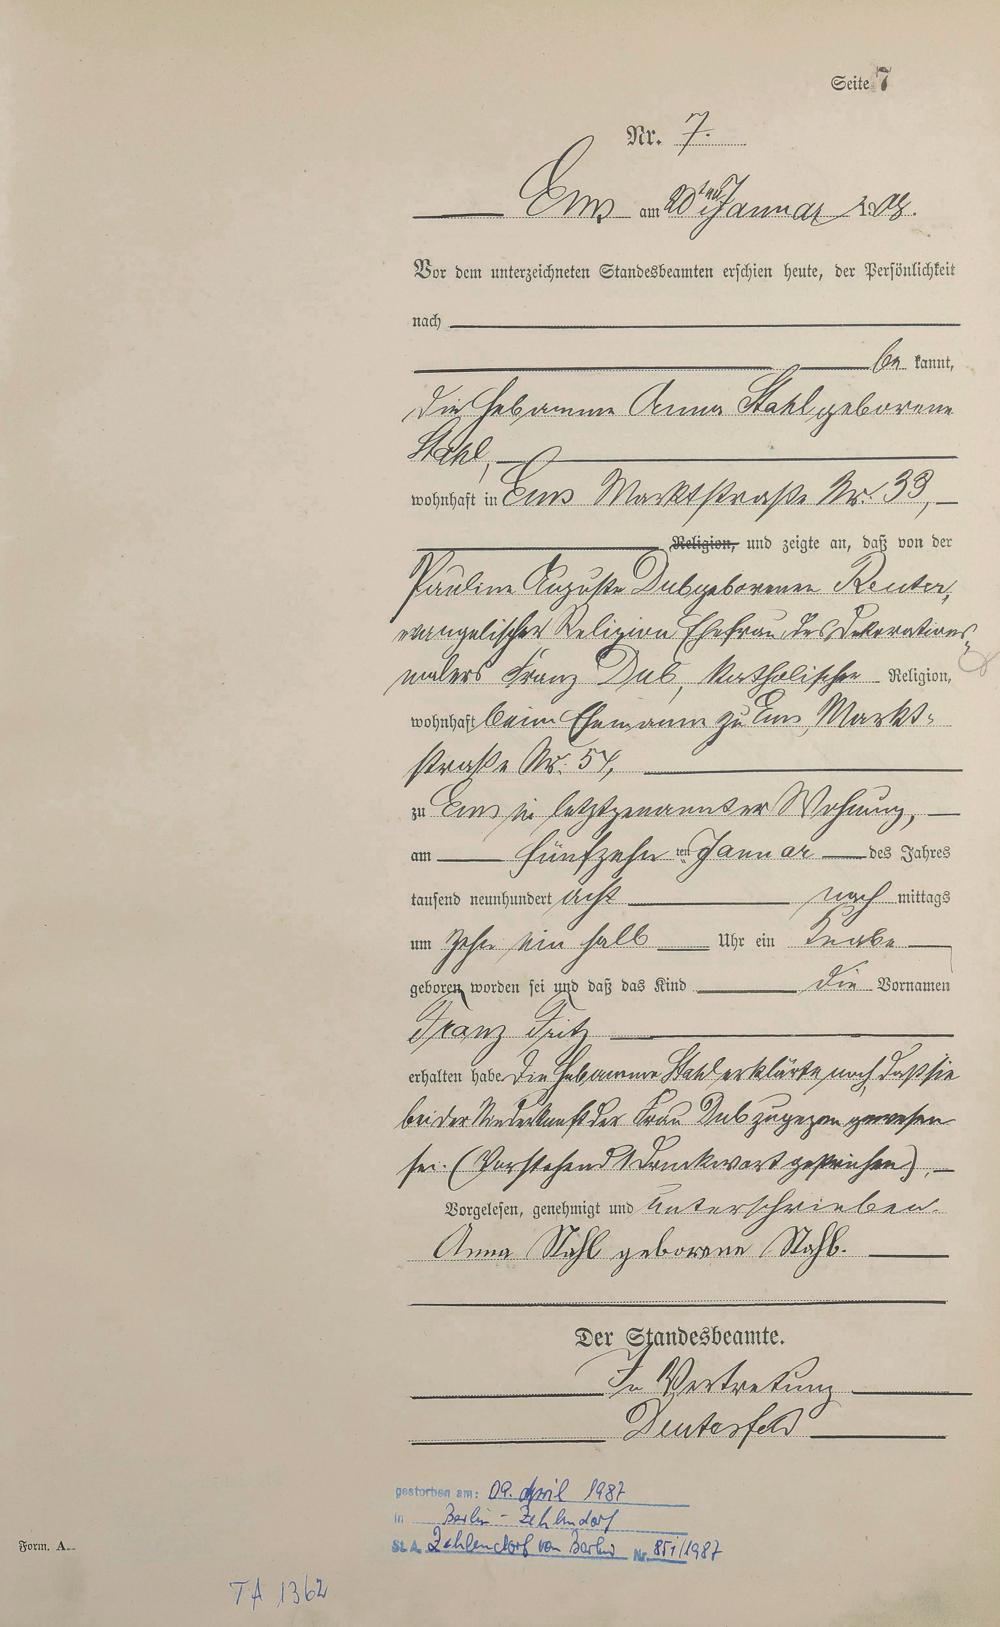 Seite 7
Nr. 7.
Ems am 20ten Januar 1908.
Vor dem unterzeichneten Standesbeamten erschien heute, der Persönlichkeit
nach
be kannt,
die Hebamme Anna Stahl geborene
Stahl,
wohnhaft in Ems Marktstraße Nr. 33,
Religion, und zeigte an, daß von der
Pauline Auguste Dub geborenen Reuter,
evangelischer Religion Ehefrau des Dekorations-
malers Franz Dub, katholischer Religion,
wohnhaft beim Ehemanne zu Ems, Markt-
straße Nr. 54,
zu Ems in letztgenannter Wohnung,
am fünfzehn ten Januar des Jahres
tausend neunhundert acht nach mittags
um zehn ein halb Uhr ein Knabe
geboren worden sei und daß das Kind die Vornamen
Franz Fritz
erhalten habe. Die Hebamme Stahl erklärte noch, daß sie
bei der Niederkunft der Frau Dub zugegen gewesen
sei. (Vorstehend 1 Druckwort gestrichen).
Vorgelesen, genehmigt und unterschrieben.
Anna Stahl geborene Stahl.
Der Standesbeamte.
In Vertretung
gestorben am: 09. April 1987
in Berlin-Zehlendorf
St. A. Zehlendorf von Berlin Nr. 851/1987
Form. A.
TA 1362